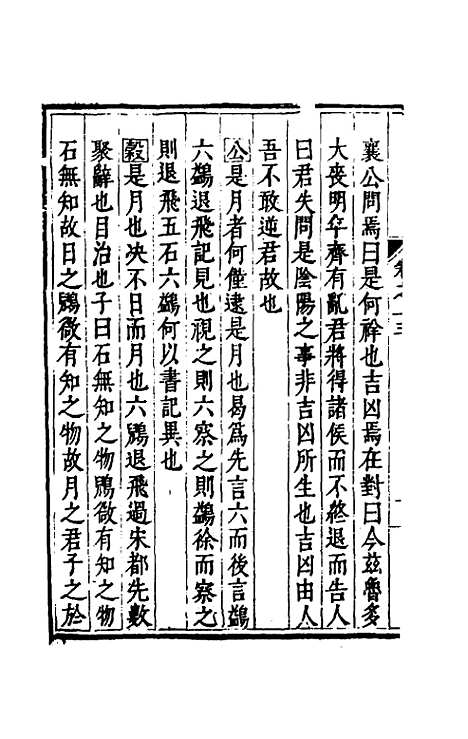 襄公問焉曰是何祥也吉凶焉在對曰今茲魯多
大喪明年齊有亂君將得諸侯而不終退而告人
曰君失問是陰陽之事非吉凶所生也吉凶由人
吾不敢逆君故也
公是月者何僅逮是月也曷爲先言六而後言鷁
六鷁退飛記見也視之則六察之則鷁徐而察之
則退飛五石六鷁何以書記異也
穀是月也决不日而月也六鶂退飛過宋都先數
聚辭也目治也子曰石無知之物鶂微有知之物
石無知故日之鶂微有知之物故月之君子之於